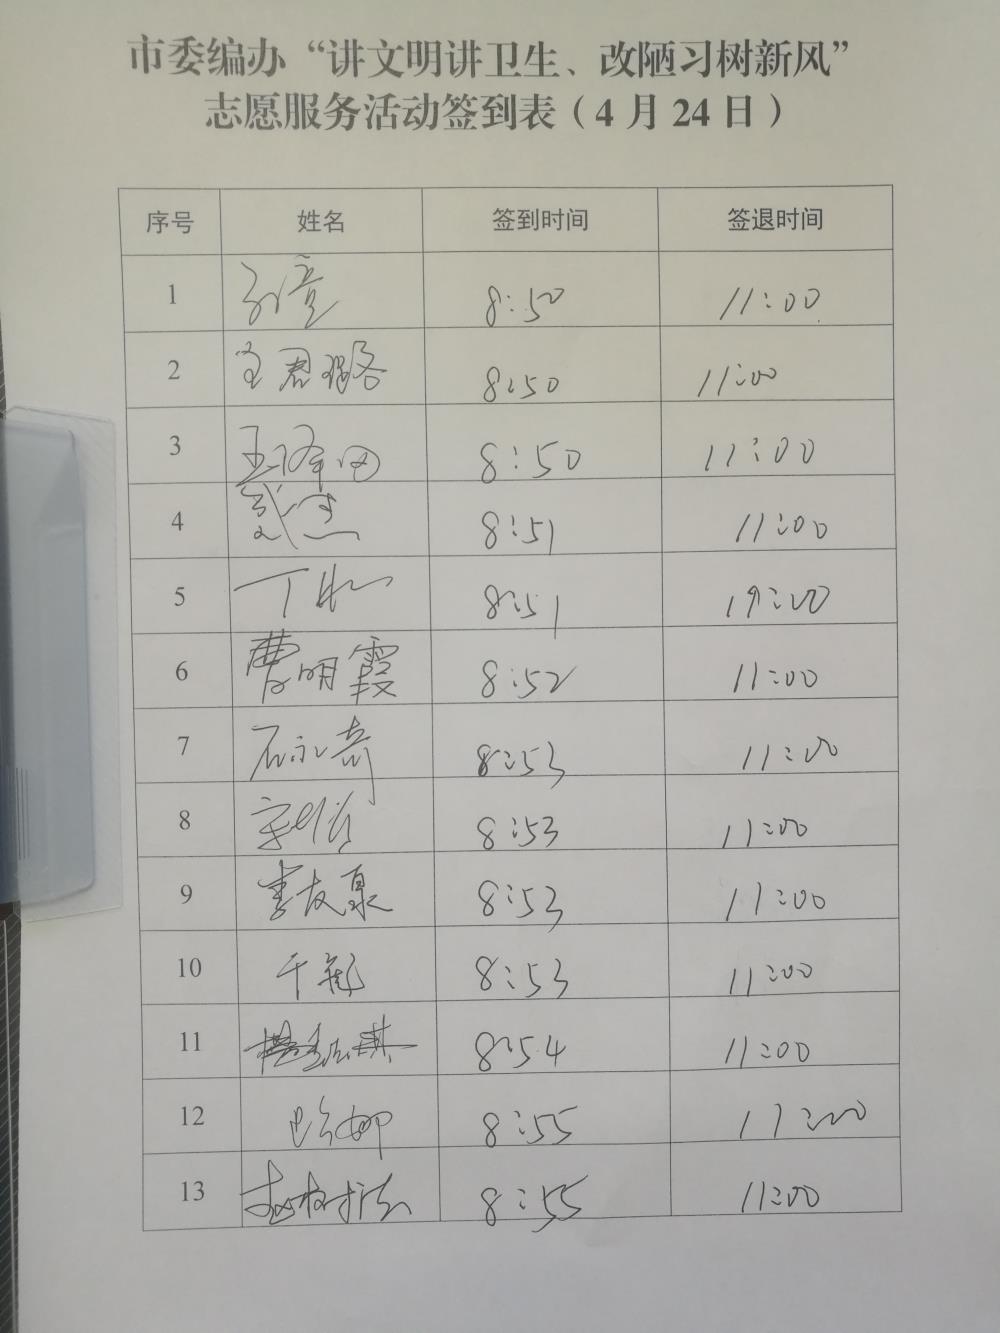 市委编办“讲文明讲卫生、改陋习树新风”
志愿服务活动签到表（4 月 24 日）
序号 姓名 签到时间 签退时间
1 8:50 11:00
2 8:50 11:00
3 8:50 11:00
4 8:51 11:00
5 丁 8:51 11:00
6 曹明霞 8:52 11:00
7 石永奇 8:53 11:00
8 8:53 11:00
9 李友泉 8:53 11:00
10 8:53 11:00
11 8:54 11:00
12 8:55 11:00
13 8:55 11:00